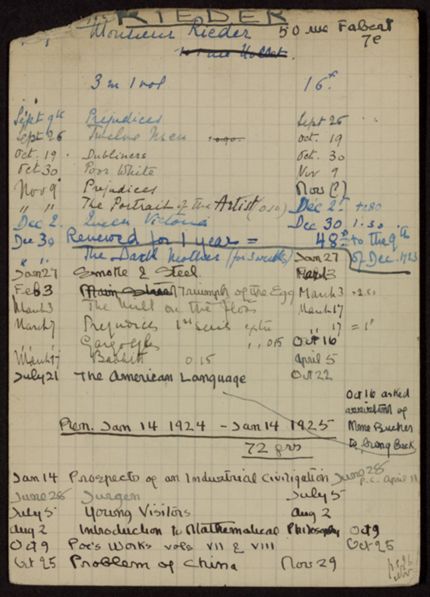 RIEDER
Monsieur Rieder 50 rue Fabert
7e
3 m 1 vol 16f
Sept 9th Prejudices Sept 26
Sept 26 Twelve Men Oct. 19
Oct. 19 Dubliners Oct. 30
Oct 30 Poor White Nov 9
Nov 9 Prejudices Nov (?)
" " The Portrait of the Artist (0.10) Dec 2
Dec 2. Queen Victoria Dec 30 1.30
Dec 30 Renewed for 1 year = 48 to the 9th
" " The Dark Mother (for 3 weeks) Jan 27 of Dec. 1923
Jan 27 Smoke & Steel March 3
Feb 3 Main Street Triumph of the Egg March 3
March 3 The Mill on the Floss March 17
March 7 Prejudices 1st series extra " 17 = 1f
Gargoyles " 0.15 Oct 16
March 17 Babbitt 0.15 April 5
July 21 The American Language Oct 22
Oct 16 asked
of
Mme
to bring back
Ren. Jan 14 1924 – Jan 14 1925
72 frs
Jan 14 Prospects of an Industrial Civilization June 28
p.c. April 11
June 28 Jurgen July 5
July 5 Young Visitors Aug 2
Aug 2 Introduction to Mathematical Philosophy Oct 9
Oct 9 Poe's Works vols VII & VIII Oct 25
Oct 25 Problem of China Nov 29